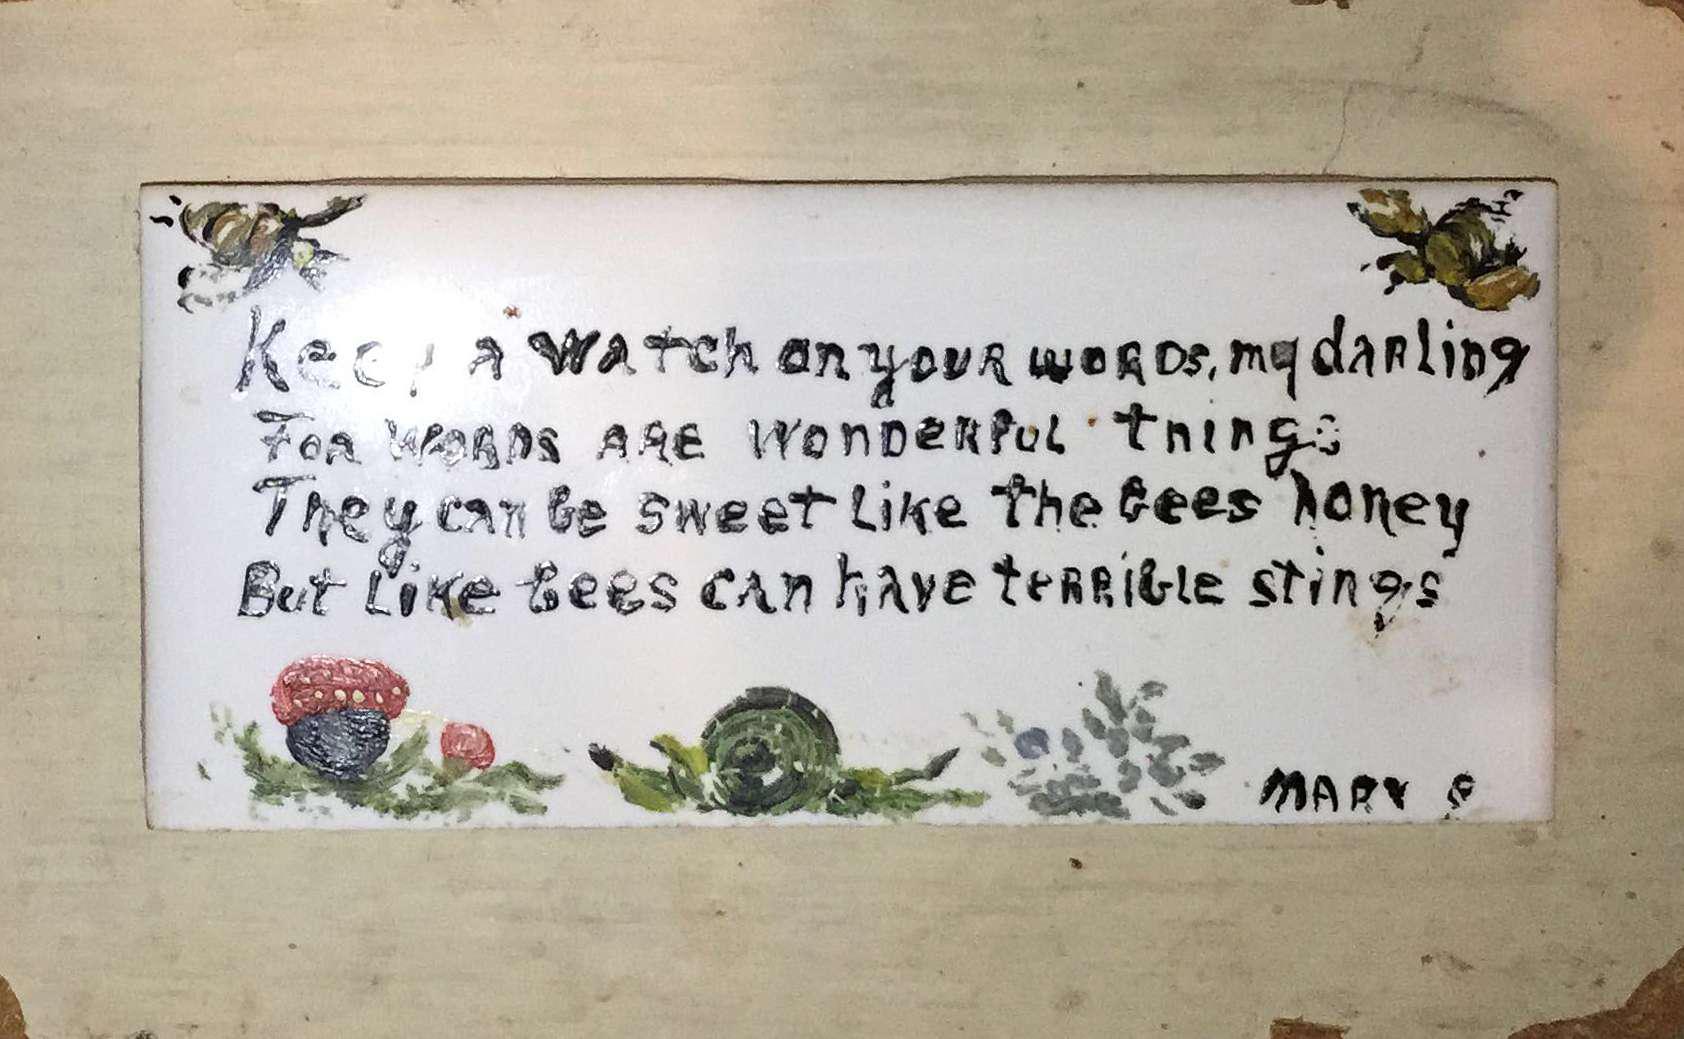 Keep a watch on your words, my darling
For words are wonderful things
They can be sweet like the bees honey
But like bees can have terrible stings
MARY